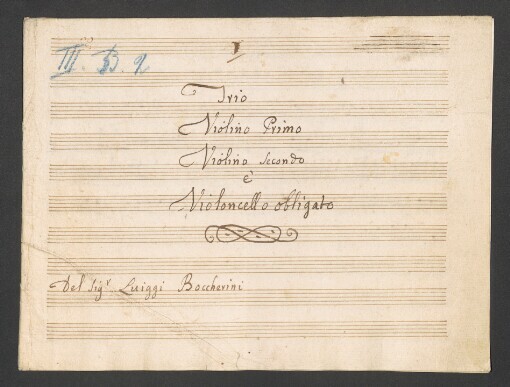 I
III. B. 2
Trio
Violino Primo
Violino Secondo
è
Violoncello obligato
Del Sigr Luiggi Boccherini